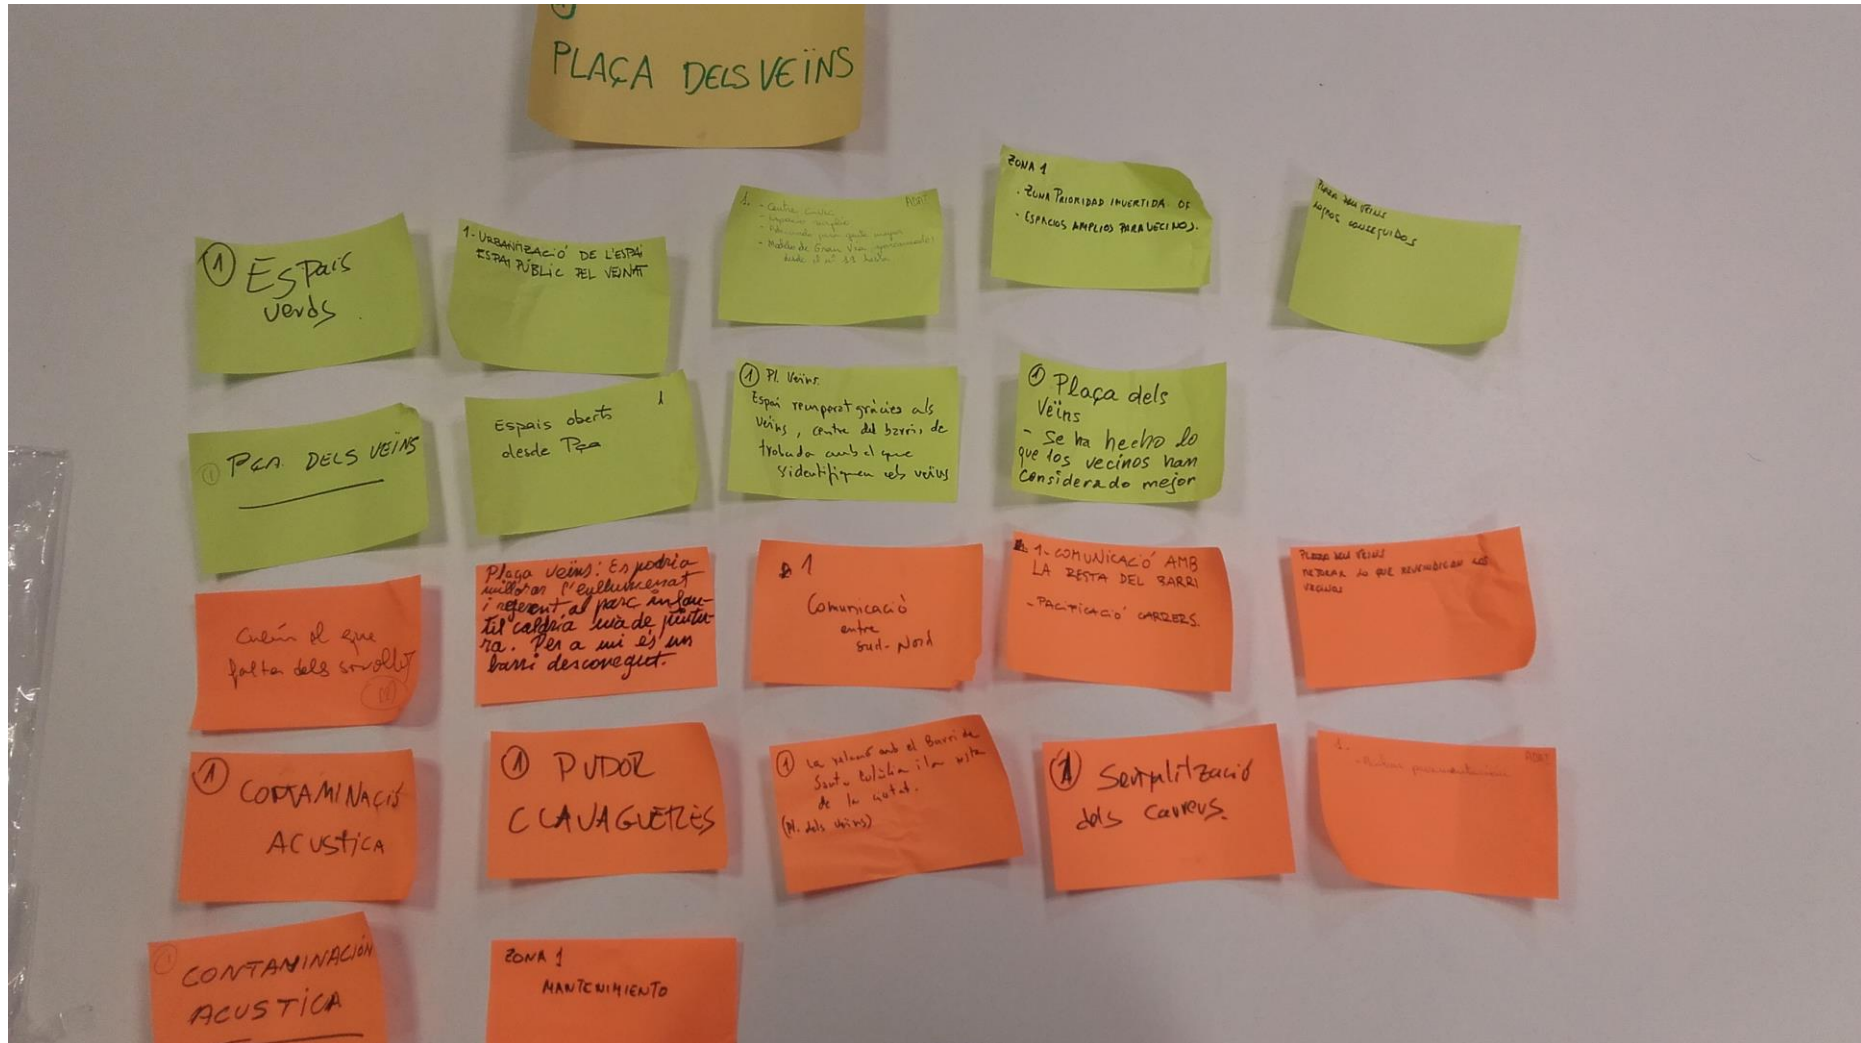 PLAÇA DELS VEÏNS
1 Espais
verds.
1- URBANITZACIÓ DE L'ESPAI
ESPAI PÚBLIC PEL VEÏNAT
1. - Centro Cívico
- Espacio amplio
- Modelo de Gran Vía
ADRI
ZONA 1
. ZONA PRIORIDAD INVERTIDA. OS
- ESPACIOS AMPLIOS PARA VECINOS.
PLAZA DELS VEINS
LOGROS CONSEGUIDOS
1 PÇA. DELS VEÏNS
1
Espais oberts
desde Pça
1 Pl. Veïns.
Espai recuperat gràcies als
veïns, centre del barri, de
trobada amb el que
s'identifiquen els veïns
1 Plaça dels
Veïns
- Se ha hecho lo
que los vecinos han
considerado mejor
el que
faltan dels
Plaça veïns: Es podria
millorar l'enllumenat
i referent al parc infan-
til caldria mà de pintu-
ra. Per a mi és un
barri desconegut.
1
Comunicació
entre
Sud-Nord
1- COMUNICACIÓ AMB
LA RESTA DEL BARRI
- PACIFICACIÓ CARRERS.
PLAZA DELS VEINS
MEJORAR LO QUE REIVINDICAN LOS
VECINOS
1 CONTAMINACIÓ
ACUSTICA
1 PUDOR
CLAVAGUERES
1 La relació amb el Barri de
Santa Eulàlia i la resta
de la ciutat.
(Pl. dels Veïns)
1 Senyalització
dels Carrers.
1-
ADRI
1 CONTAMINACIÓN
ACUSTICA
ZONA 1
MANTENIMIENTO